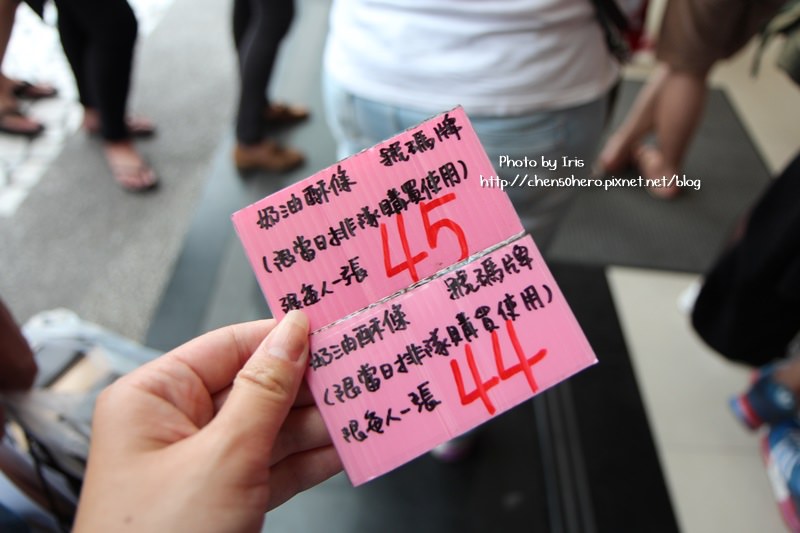 奶油酥條 號碼牌
(限當日排隊購買使用)
限每人一張 45
奶油酥條 號碼牌
(限當日排隊購買使用)
限每人一張 44
Photo by Iris
http://chen50hero.pixnet.net/blog